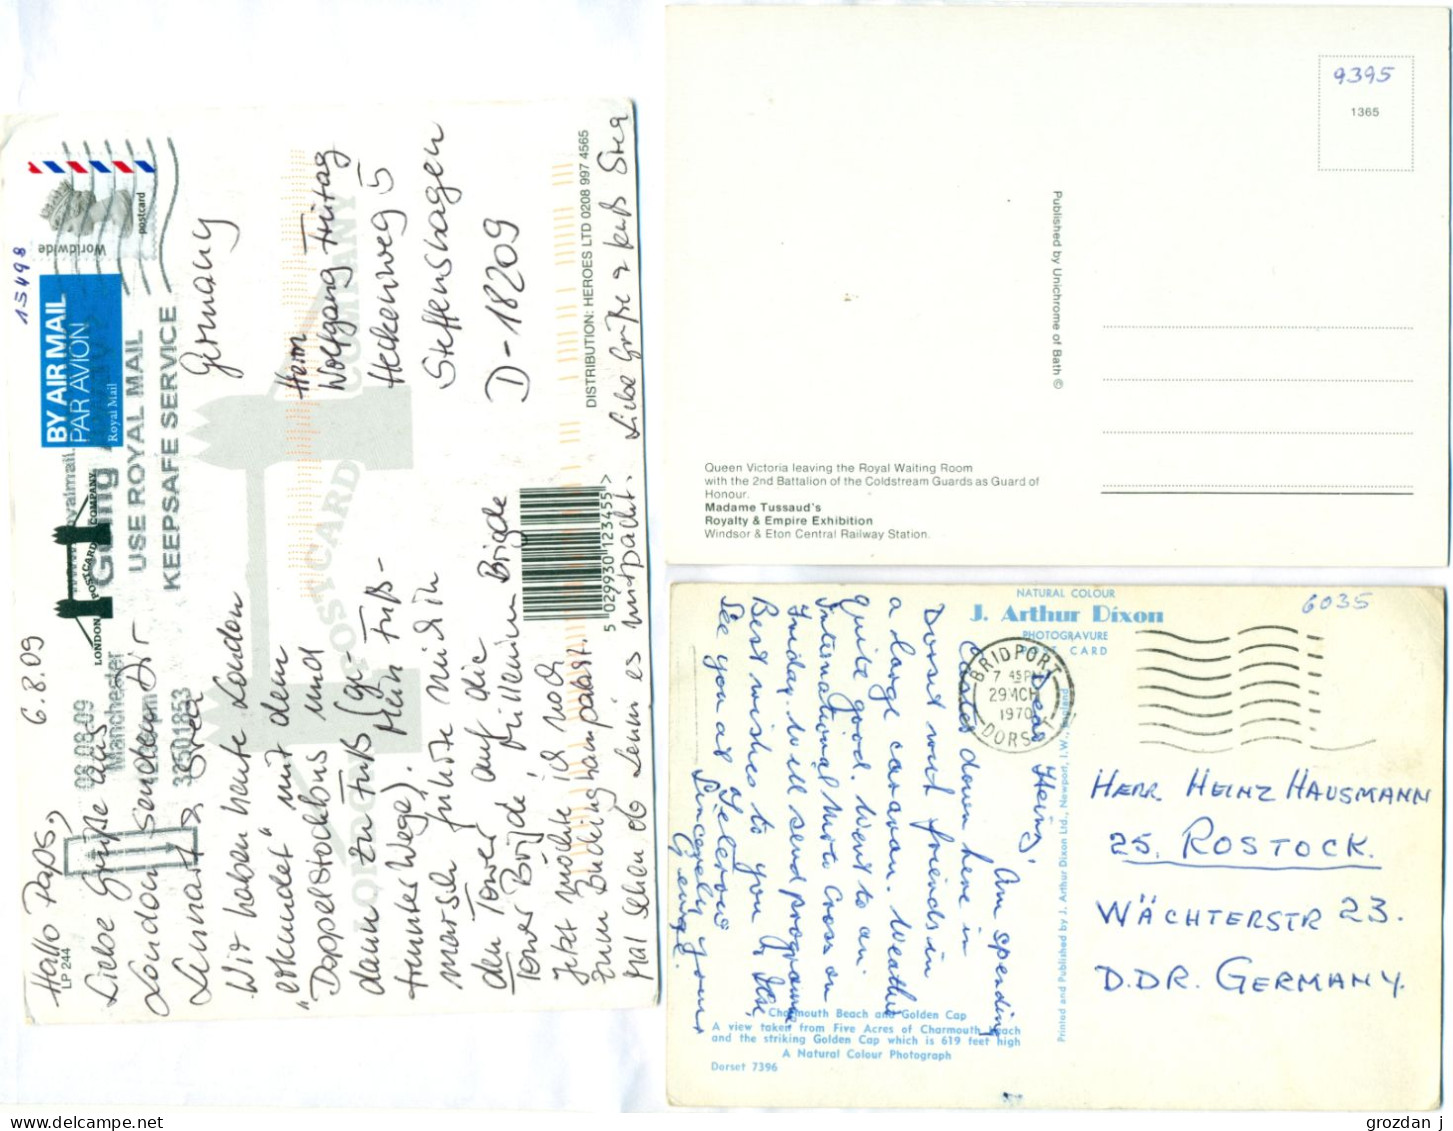 15498
Worldwide
postcard
BY AIR MAIL
PAR AVION
Royal Mail
royalmail.
Going
USE ROYAL MAIL
KEEPSAFE SERVICE
LONDON POSTCARD COMPANY
08.08.09
Manchester
32501853
6.8.09
Hallo Paps,
LP 244
Liebe Grüße aus
London senden Dir
Lennart & Svea
Wir haben heute London
"erkundet" mit dem
Doppelstockbus und
dann zu Fuß (ge-
Mein Fuß-
marsch führte mich in
den Tower, auf die
Tower Brigde, Millenium Brigde
Jetzt möchte ich noch
zum Buckinghampalast.
Mal sehen ob Lenni es mitpacht.
Liebe Grüße & Kuß Svea
Germany
Herrn
Wolfgang Freitag
Heckenweg 5
Steffenshagen
D-18209
LONDON POSTCARD COMPANY
5 029930 123455 >
DISTRIBUTION: HEROES LTD 0208 997 4565
9395
1365
Published by Unichrome of Bath ©
Queen Victoria leaving the Royal Waiting Room
with the 2nd Battalion of the Coldstream Guards as Guard of
Honour.
Madame Tussaud's
Royalty & Empire Exhibition
Windsor & Eton Central Railway Station.
NATURAL COLOUR
J. Arthur Dixon
PHOTOGRAVURE
POST CARD
6035
BRIDPORT
7 45 PM
29 MCH
1970
DORSET
Dear Heinz,
Am spending
Easter down here in
Dorset with friends in
a large caravan. Weather
quite good. Went to an
International Moto Cross on
Friday. Will send programme.
Best wishes to you & Ilse,
See you at Teterow
Sincerely yours
George.
Printed and Published by J. Arthur Dixon Ltd., Newport I.W., England
HERR HEINZ HAUSMANN
25. ROSTOCK.
WÄCHTERSTR 23.
D.DR. GERMANY.
Charmouth Beach and Golden Cap
A view taken from Five Acres of Charmouth Beach
and the striking Golden Cap which is 619 feet high
A Natural Colour Photograph
Dorset 7396
grozdan j